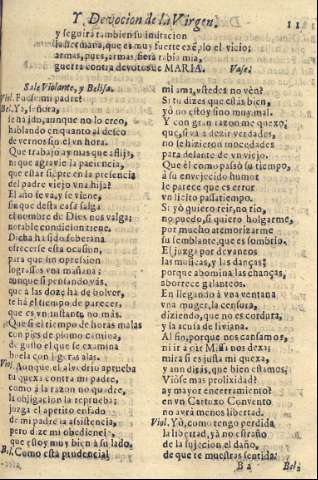 Y Devocion de la Virgen. 11
y seguirà tambien su imitacion
su hermana, que es muy fuerte exẽplo el vicio;
armas, pues, armas fiera rabia mia,
guerra contra devotos de MARIA. Vase.
Sale Violante, y Belisa.
Viol. Fuesse mi padre?
Bel. Yà, señora,
se ha ido, aunque no lo creo,
hablando en quanto al deseo
de vernos sin èl vn hora.
Que trabajo ay mas que aflija,
ni que agravie la paciencia,
que estar siẽpre en la presencia
del padre viejo vna hija?
El año se và, y se viene,
sin que desta casa salga
el nombre de Dios nos valga;
notable condicion tiene.
Dicha ha sido soberana
ofrecerse esta ocasion,
para que sin opression
lograsses vna mañana;
aunque si pensando vàs,
que a las doze ha de bolver,
te hà el tiempo de parecer,
que es vn instante no mas.
Que si el tiempo de horas malas
con pies de plomo camina,
de gusto el que se examina
buela con ligeras alas.
Viol. Aunque el alvedrio aprueba
tu quexa contra mi padre,
como à la razon no quadre,
la obligacion la reprueba;
juzga el aperito enfado
de mi padre la assistencia,
pero dize mi obediencia
que estoy muy bien à su lado.
Bel. Como està prudencial
mi ama, vstedes no vèn?
Si tu dizes que estàs bien,
yò no estoy sino muy mal.
Y con gran razon me quexo,
que, si va a dezir verdades,
no se hizieron mocedades
para delante de vn viejo.
Que èl como passò su tiempo,
à su envejecido humor
le parece que es error
vn licito passatiempo.
Si yò quiero reir, no rio,
no puedo, si quiero holgarme,
por mucho atemorizarme
su semblante, que es sombrio.
El juzga por devaneos
las musicas, y las danças,
porque abomina las chanças,
aborrece galanteos.
En llegando à vna ventana
vna muger, la censura,
diziendo, que no es cordura,
y la acusa de liviana.
Al fin, porque nos cansamos,
ni ir à oir Missa nos dexa;
mira si es justa mi quexa,
y aun diràs, que bien estamos.
Viòse mas prolixidad?
ay mayor encerramiento?
en vn Cartuxo Convento
no avrà menos libertad.
Viol. Yò, como tengo perdida
la libertad, yà no estraño
de la sujecion el daño,
de que te muestras sentida.
B 2 Bel.